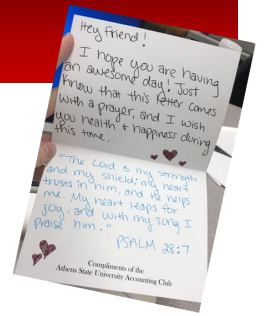 Hey friend!
I hope you are having
an awesome day! Just
know that this letter comes
with a prayer, and I wish
you health & happiness during
this time.
"The Lord is my strength
and my shield; my heart
trusts in him, and he helps
me. My heart leaps for
joy, and with my song I
praise him."
PSALM 28:7
Compliments of the
Athens State University Accounting Club